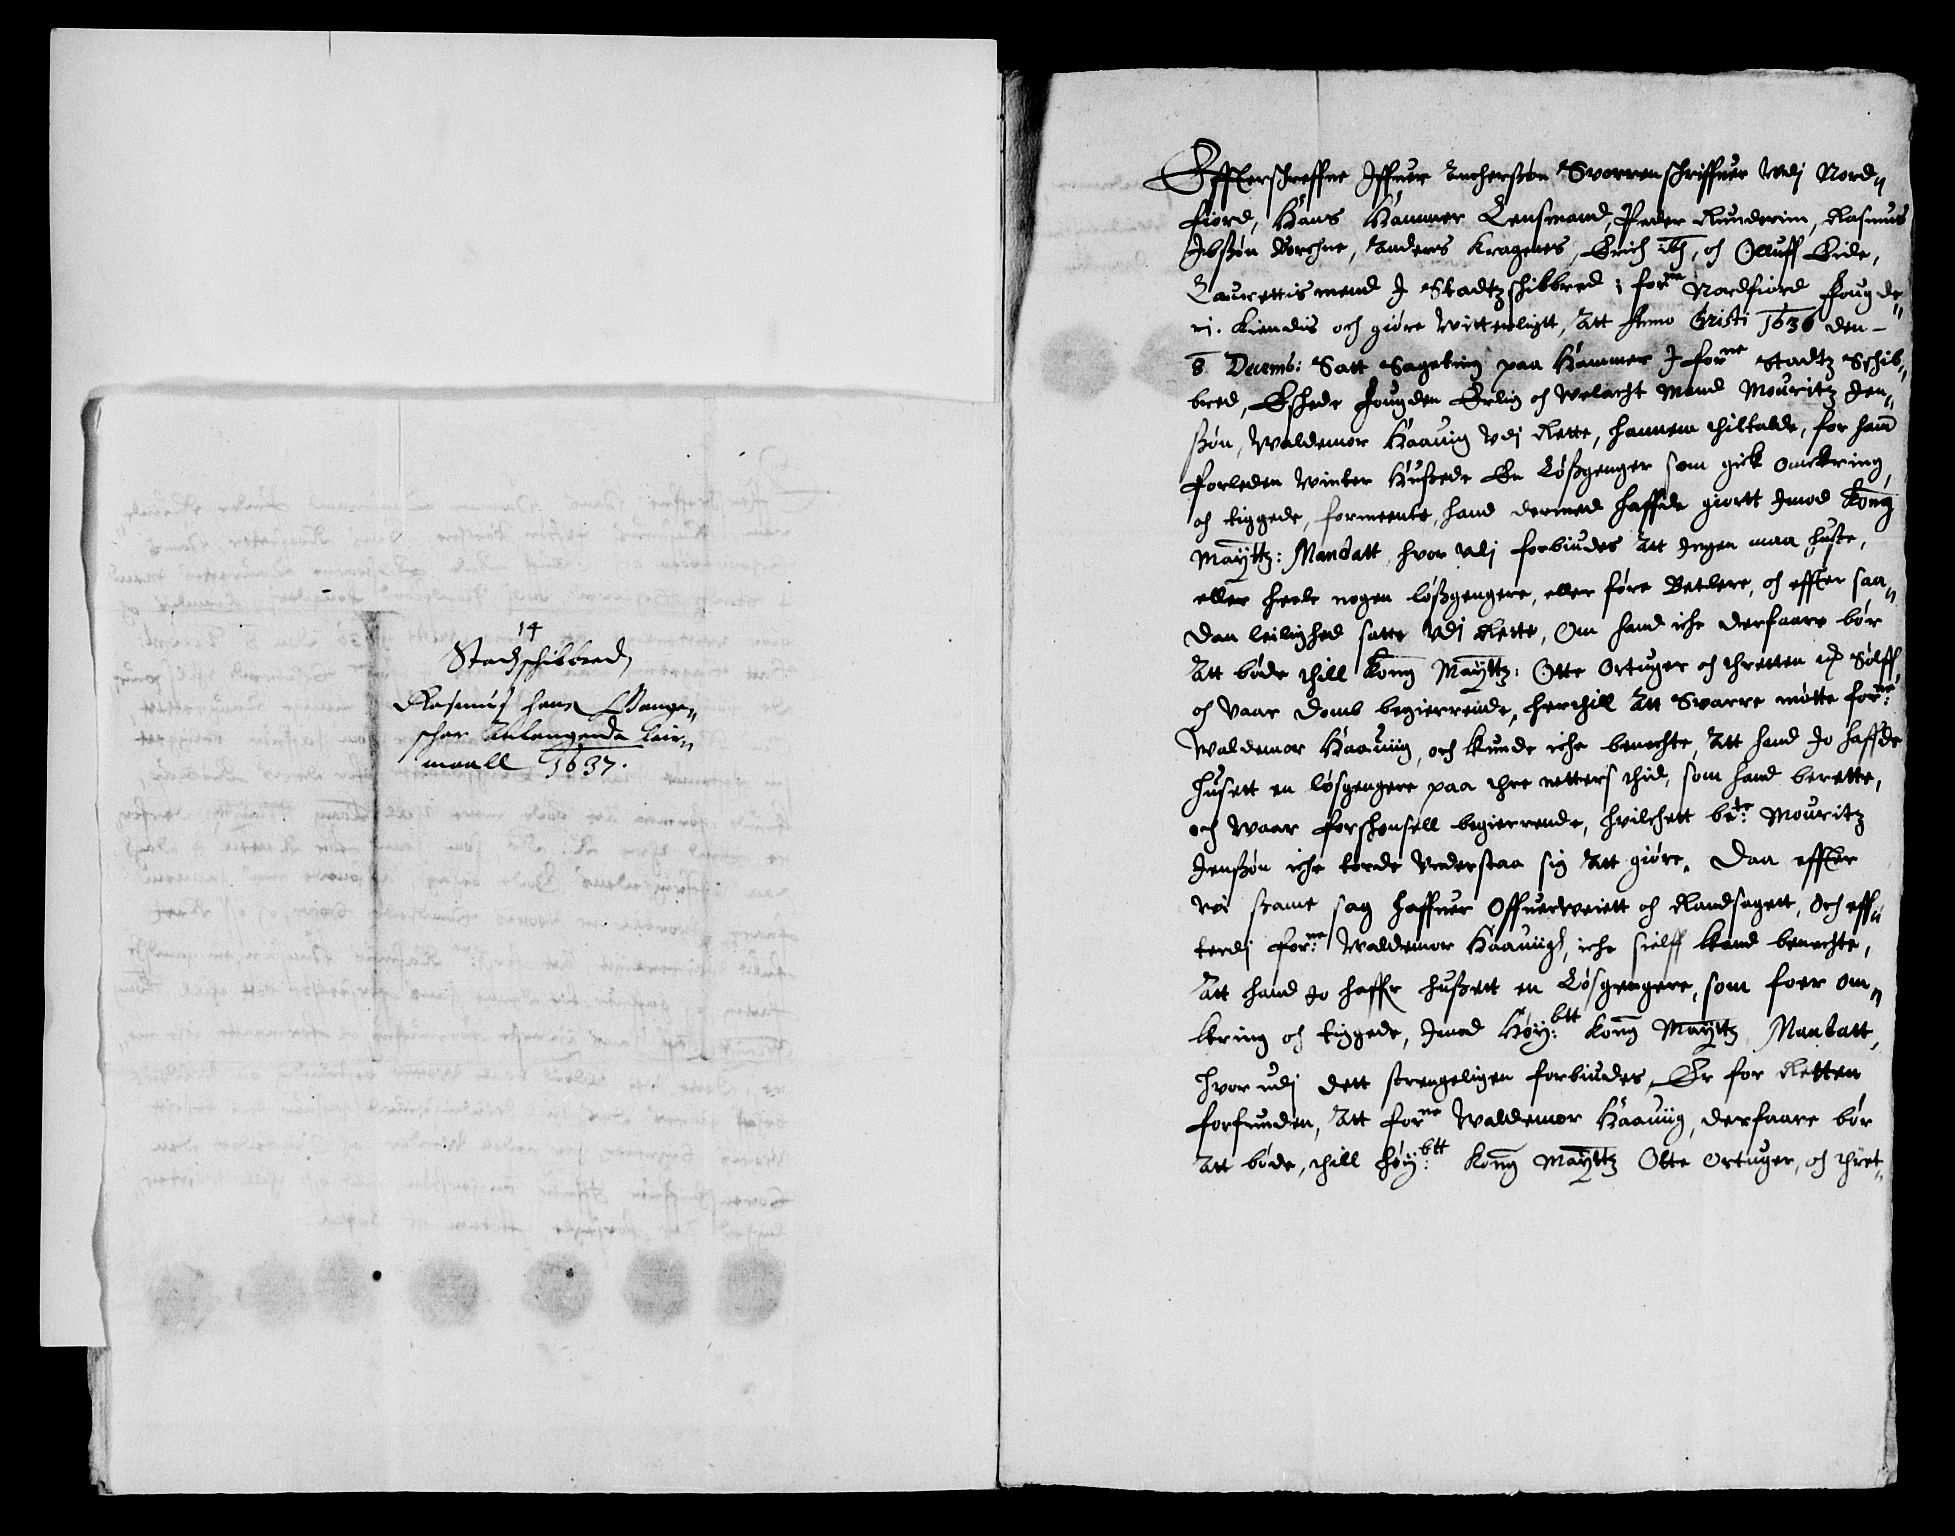 14
Stadschibbred
Rasmus Hans Mange-
schor Anlangende Leir-
maall 1637.
Effterschreffne Iffuer Ancherßøn Svorrenschriffuer Vdj Nord-
fiord, Hans Hammer Lensmand, Peder Runderim, Rasmus
Ibßøn Borchne, Anders Kragenes, Erich ibd, och Olluff Eide,
Laurettis mend I Stadtzschibbred i forne Nordfiord Fougde-
ri. Kiendis och giøre Witterligtt, Att Anno Christi 1636 den
8 Decemb: Satt Sageting paa Hammer I forne Stadtz Schib-
bred, Eschede Fougden Erlig och Welacht Mand Mouritz Jen-
ßøn, Waldemor Haauig Vdj Rette, hannem thiltalde, for hand
forleden Winter Hußede En Løßgenger som gick omkring,
och tiggede, formeente, hand dermed haffde giortt Imod Kong
Mayttz: Mandatt hvor vdj forbiudes Att Ingen maa huße,
eller heele nogen løßgengere, eller føre Betlere, och effter saa-
dan leilighed satte Vdj Rette, Om hand iche derfaare bør
Att bøde thill Kong Mayttz: Otte Ortuger och thretten  Sølff,
och vaar Domb begierrende, herthill Att Svarre møtte forne:
Waldemor Haauiig, och kunde iche benechte, Att hand Jo haffde
husett en løsgengere paa thre netters thid, som hand berette,
och waar forschonsell begierrende, hvilchett bete: Mouritz
Jenßøn iche torde Vnderstaa sig Att giøre. Daa effter
Wi ßame sag haffuer Offuerveiett och Randsagett, Och eff-
terdj forne: Waldemor Haauiigh, iche sielff kand benechte,
Att hand Jo haffr hußett en Løsgengere, som foer om-
kring och tiggede, Imod Høy:btt Kong Mayttz Mandatt,
hvor udj dett strengeligen forbiudes, Er for Retten
forfunden, Att forne Waldemor Haauiig, derfaare bør
Att bøde, thill høy:btt Kong Mayttz Otte Ortuger, och thret-